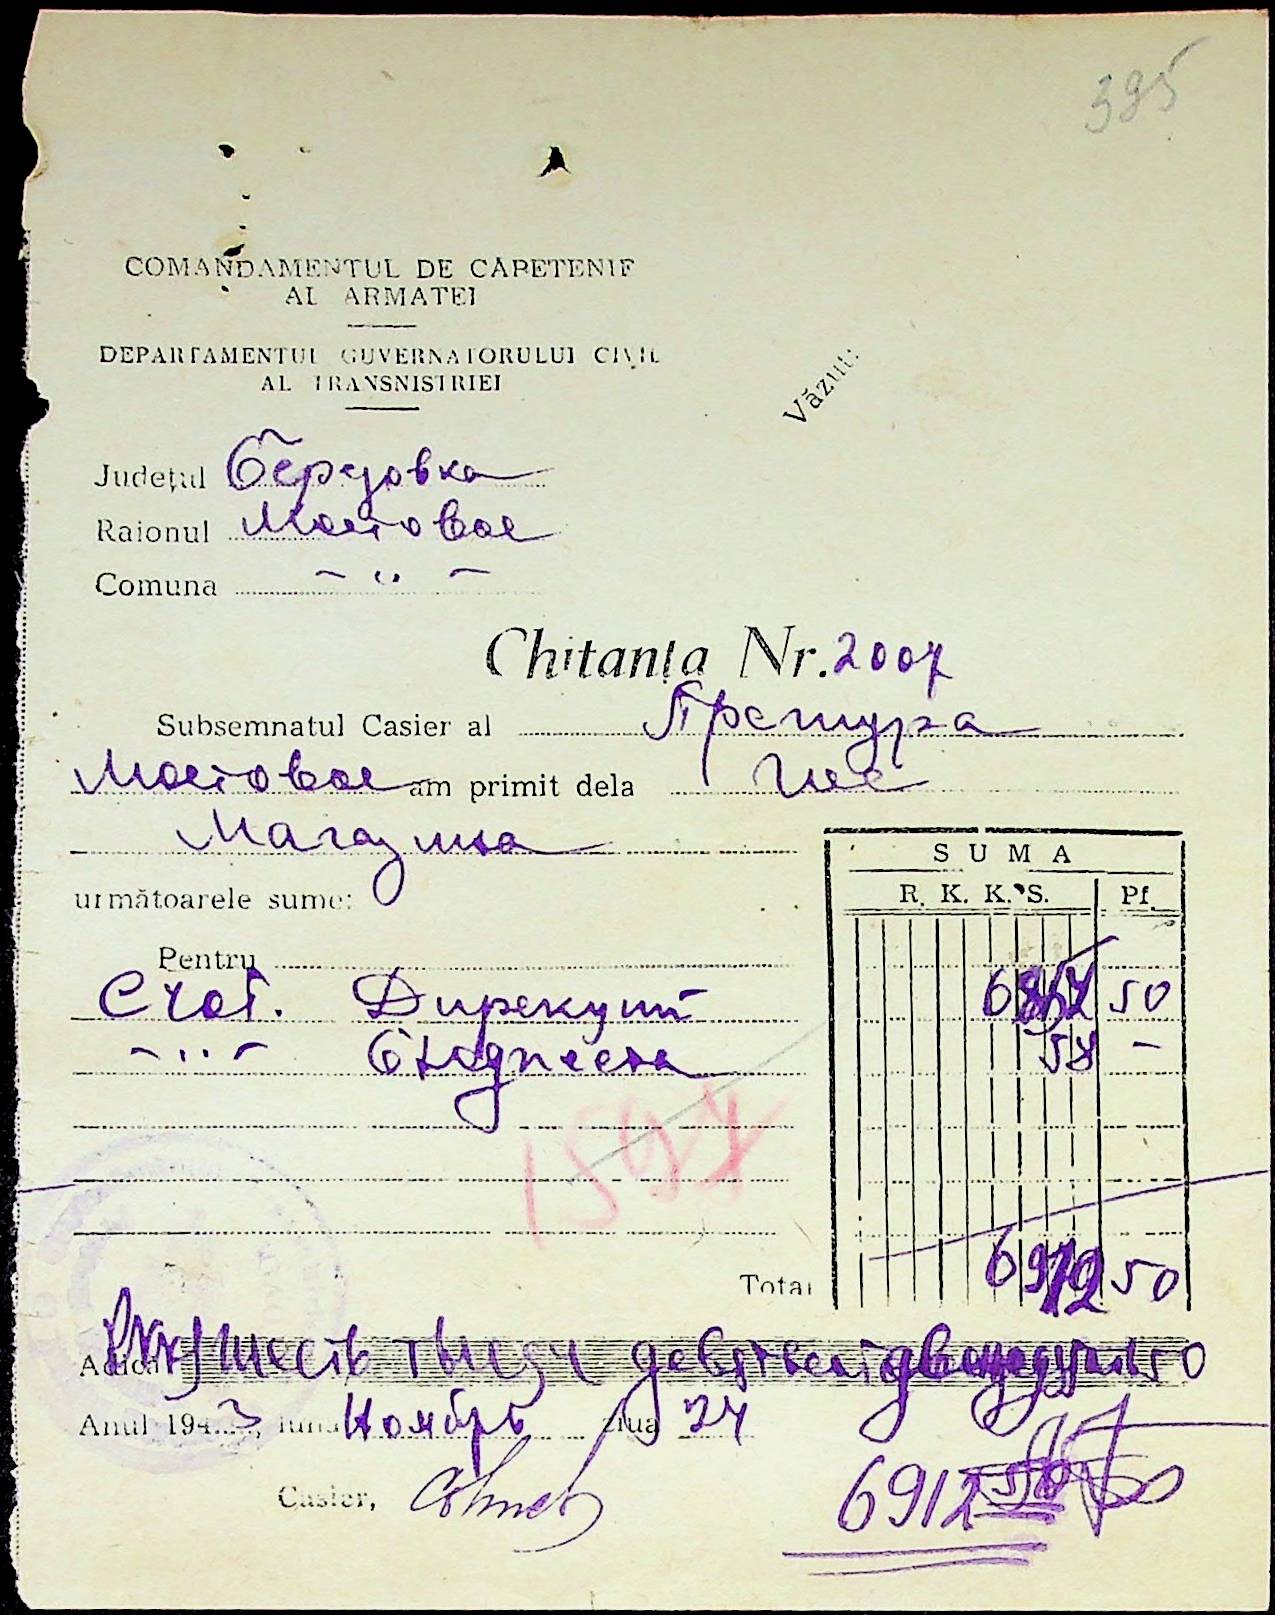 395
COMANDAMENTUL DE CAPETENIE
AL ARMATEI
DEPARTAMENTUL GUVERNATORULUI CIVIL
AL TRANSNISTRIEI
Văzut:
Județul Березовка
Раionul Мостовое
Comuna – „ –
Chitanța Nr. 2007
Subsemnatul Casier al Претура
Мостовое am primit dela
Магазина
următoarele sume:
SUMA
R. K. K. S. Pf.
Pentru
Счет. 50
– „ – 58 –
1597
Total 6912 50
Adică шесть тысяч девятьсот двенадцать 50
Anul 1943, luna Ноябрь ziua 24
Casier,
6912 50